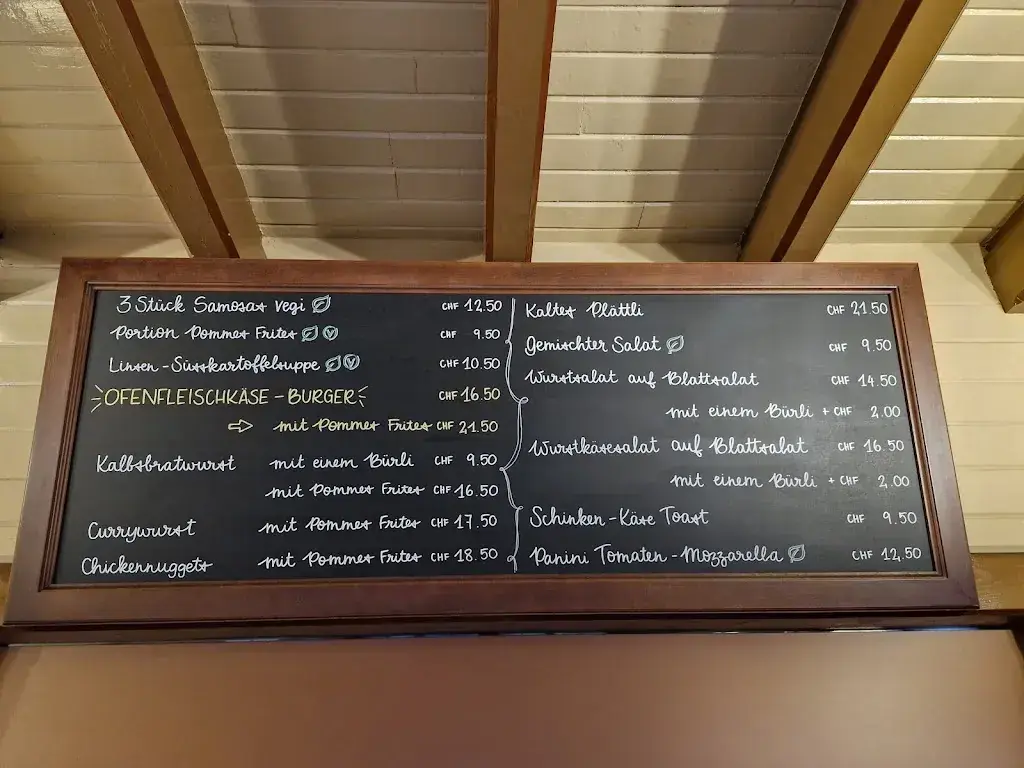 3 Stück Samosas vegi CHF 12.50
Portion Pommes Frites Ⓥ CHF 9.50
Linsen-Süsskartoffelsuppe Ⓥ CHF 10.50
OFENFLEISCHKÄSE-BURGER CHF 16.50
⇨ mit Pommes Frites CHF 21.50
Kalbsbratwurst mit einem Bürli CHF 9.50
mit Pommes Frites CHF 16.50
Currywurst mit Pommes Frites CHF 17.50
Chickennuggets mit Pommes Frites CHF 18.50
Kaltes Plättli CHF 21.50
Gemischter Salat CHF 9.50
Wurstsalat auf Blattsalat CHF 14.50
mit einem Bürli + CHF 2.00
Wurstkäsesalat auf Blattsalat CHF 16.50
mit einem Bürli + CHF 2.00
Schinken-Käse Toast CHF 9.50
Panini Tomaten-Mozzarella CHF 12.50